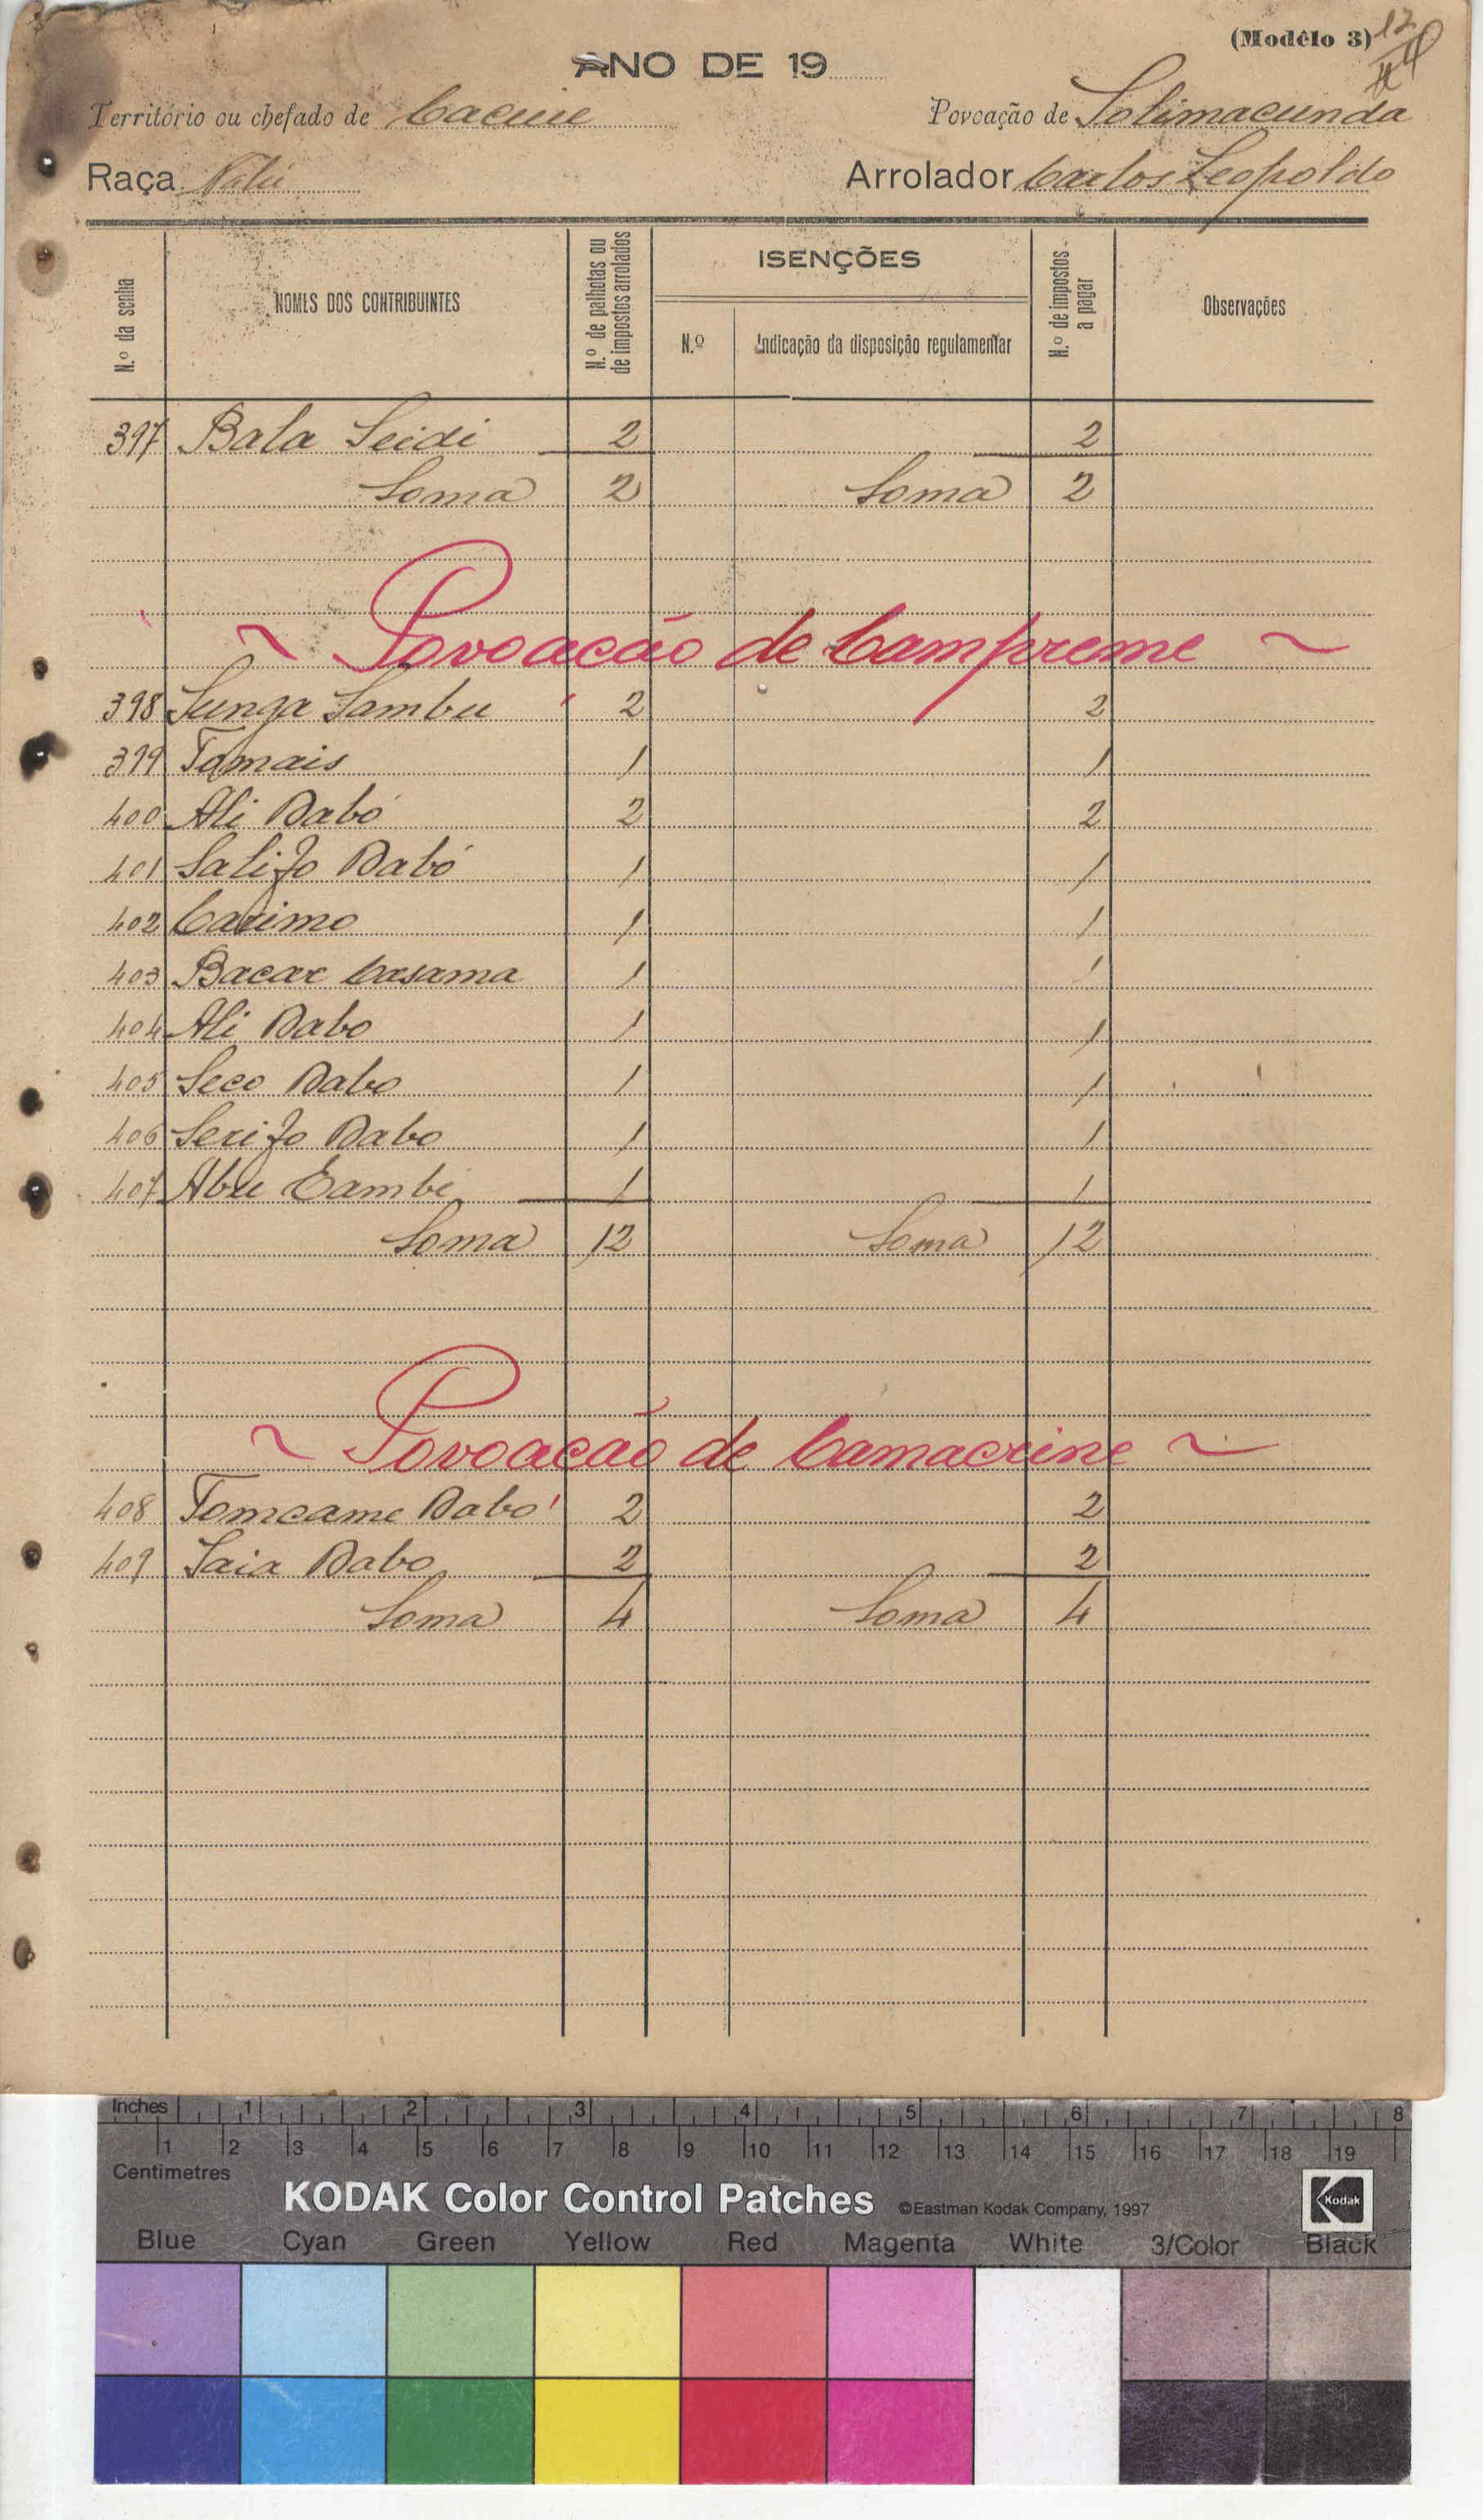 (Modêlo 3) 12
ANO DE 19
Território ou chefado de Cacine Povoação de Solimacunda
Raça Nalú Arrolador Carlos Leopoldo
N.º da senha
NOMES DOS CONTRIBUINTES
N.º de palhotas ou de impostos arrolados
ISENÇÕES
N.º
Indicação da disposição regulamentar
N.º de impostos a pagar
Observações
397 Bala Seidi 2 2
Soma 2 Soma 2
~ Povoacão de Campreme ~
398 Sunga Sambu 2 2
399 Tomais 1 1
400 Ali Dabó 2 2
401 Salifo Dabó 1 1
402 Carimo 1 1
403 Bacar Casama 1 1
404 Ali Dabo 1 1
405 Seco Dabo 1 1
406 Serifo Dabo 1 1
407 Abu Cambi 1 1
Soma 12 Soma 12
~ Povoacão de Camacrine ~
408 Tomcame Dabo 2 2
409 Saia Dabo 2 2
Soma 4 Soma 4
Inches 1 2 3 4 5 6 7 8
1 2 3 4 5 6 7 8 9 10 11 12 13 14 15 16 17 18 19
Centimetres
KODAK Color Control Patches ©Eastman Kodak Company, 1997 Kodak
Blue Cyan Green Yellow Red Magenta White 3/Color Black